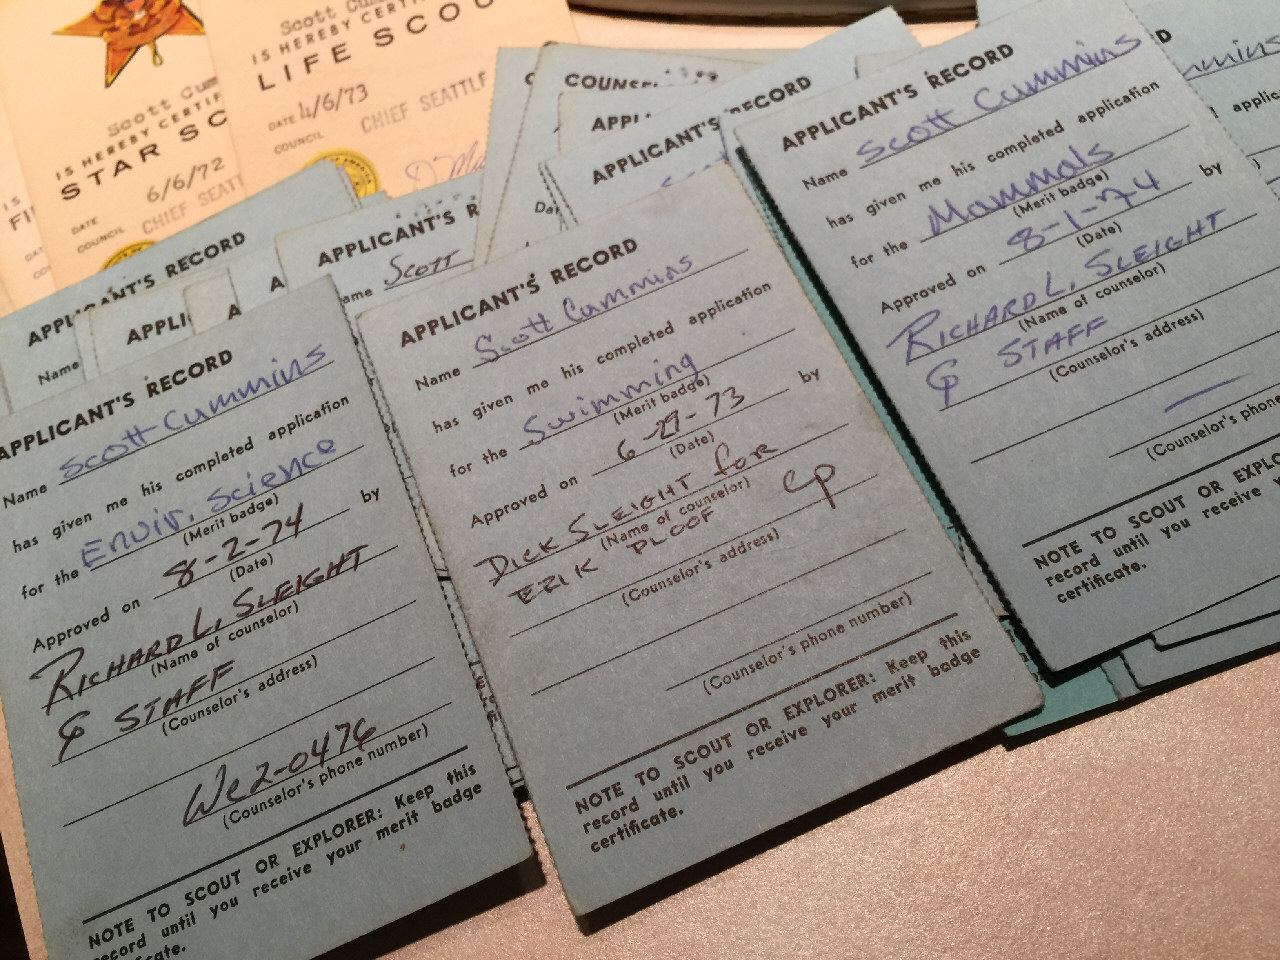 Scott Cum
IS HEREBY CERTIF
STAR SC
DATE 6/6/72
COUNCIL CHIEF SEATT
Scott Cu
IS HEREBY CERTI
LIFE SCOU
DATE 4/6/73
COUNCIL CHIEF SEATTLE
APPLICANT'S RECORD
Name
APPLI
A
A
APPLICANT'S R
ame Scott
COUNSEL
APPL
APPLICANT'S RECORD
Da
D
mmins
applic
APPLICANT'S RECORD
Name Scott Cummins
has given me his completed application
for the Envir. Science
(Merit badge)
Approved on 8-2-74 by
(Date)
RICHARD L. SLEIGHT
(Name of counselor)
& STAFF
(Counselor's address)
We2-0476
(Counselor's phone number)
NOTE TO SCOUT OR EXPLORER: Keep this
record until you receive your merit badge
icate.
APPLICANT'S RECORD
Name Scott Cummins
has given me his completed application
for the Swimming
(Merit badge)
Approved on 6-29-73 by
(Date)
DICK SLEIGHT for
(Name of counselor)
ERIK PLOOF
(Counselor's address)
(Counselor's phone number)
NOTE TO SCOUT OR EXPLORER: Keep this
record until you receive your merit badge
certificate.
APPLICANT'S RECORD
Name Scott Cummins
has given me his completed application
for the Mammals
(Merit badge)
Approved on 8-1-74 by
(Date)
RICHARD L. SLEIGHT
(Name of counselor)
& STAFF
(Counselor's address)
(Counselor's phone
NOTE TO SCOUT OR EXPLOR
record until you receive y
certificate.